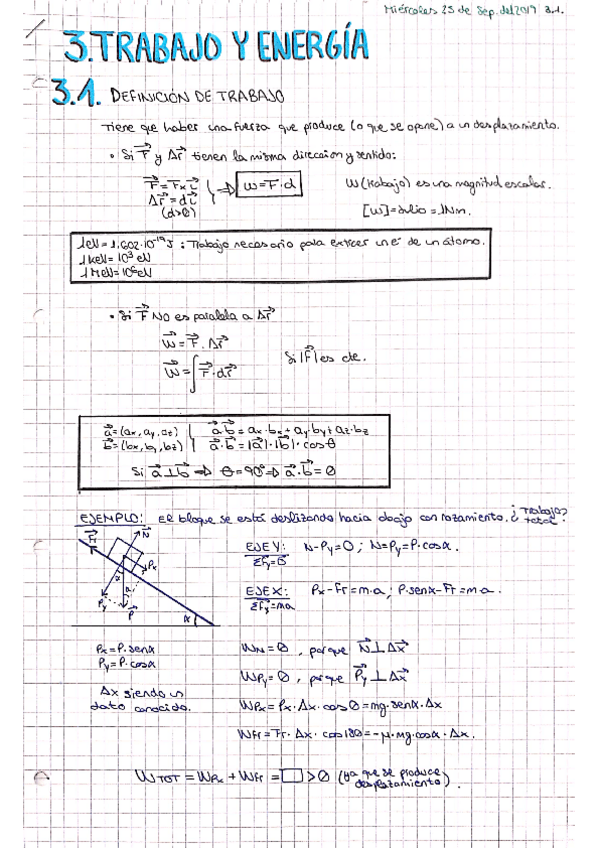 Miércoles 25 de Sep. del 2019 3.1.
3. TRABAJO Y ENERGÍA
3.1. DEFINICIÓN DE TRABAJO
Tiene que haber una fuerza que produce (o que se opone) a un desplazamiento.
• Si F⃗ y Δr⃗ tienen la misma dirección y sentido:
F⃗ = Fx i⃗
Δr⃗ = d i⃗
(d>0)
⇒ W = F · d
W (trabajo) es una magnitud escalar.
[W] = Julio = 1Nm.
1eV = 1,602·10⁻¹⁹ J : Trabajo necesario para extraer un e⁻ de un átomo.
1 keV = 10³ eV
1 MeV = 10⁶ eV
• Si F⃗ NO es paralela a Δr⃗
W⃗ = F⃗ · Δr⃗
W⃗ = ∫ F⃗ · dr⃗
Si |F⃗| es cte.
a⃗ = (ax, ay, az) a⃗·b⃗ = ax·bx + ay·by + az·bz
b⃗ = (bx, by, bz) a⃗·b⃗ = |a⃗|·|b⃗|·cosθ
Si a⃗ ⊥ b⃗ ⇒ θ = 90° ⇒ a⃗·b⃗ = 0
EJEMPLO: El bloque se está deslizando hacia abajo con rozamiento. ¿Trabajo total?
Fr⃗ N⃗
Px
Py P⃗
α α
EJE Y: N-Py=0 ; N=Py=P·cosα.
ΣFy=0
EJE X: Px-Fr=m·a ; P·senα-Fr=m·a.
ΣFx=ma
Px = P·senα
Py = P·cosα
Δx siendo un
dato conocido.
WN = 0 , porque N⃗ ⊥ Δx⃗
WPy = 0 , porque P⃗y ⊥ Δx⃗
WPx = Px·Δx·cos 0 = mg·senα·Δx
WFr = Fr·Δx·cos180 = -μ·mg·cosα·Δx.
WTOT = WPx + WFr = □ > 0 (ya que se produce desplazamiento).